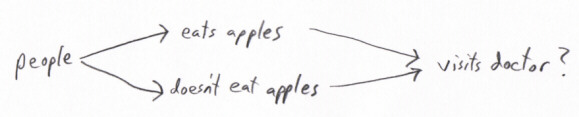 eats apples
people
visits doctor?
doesn't eat apples